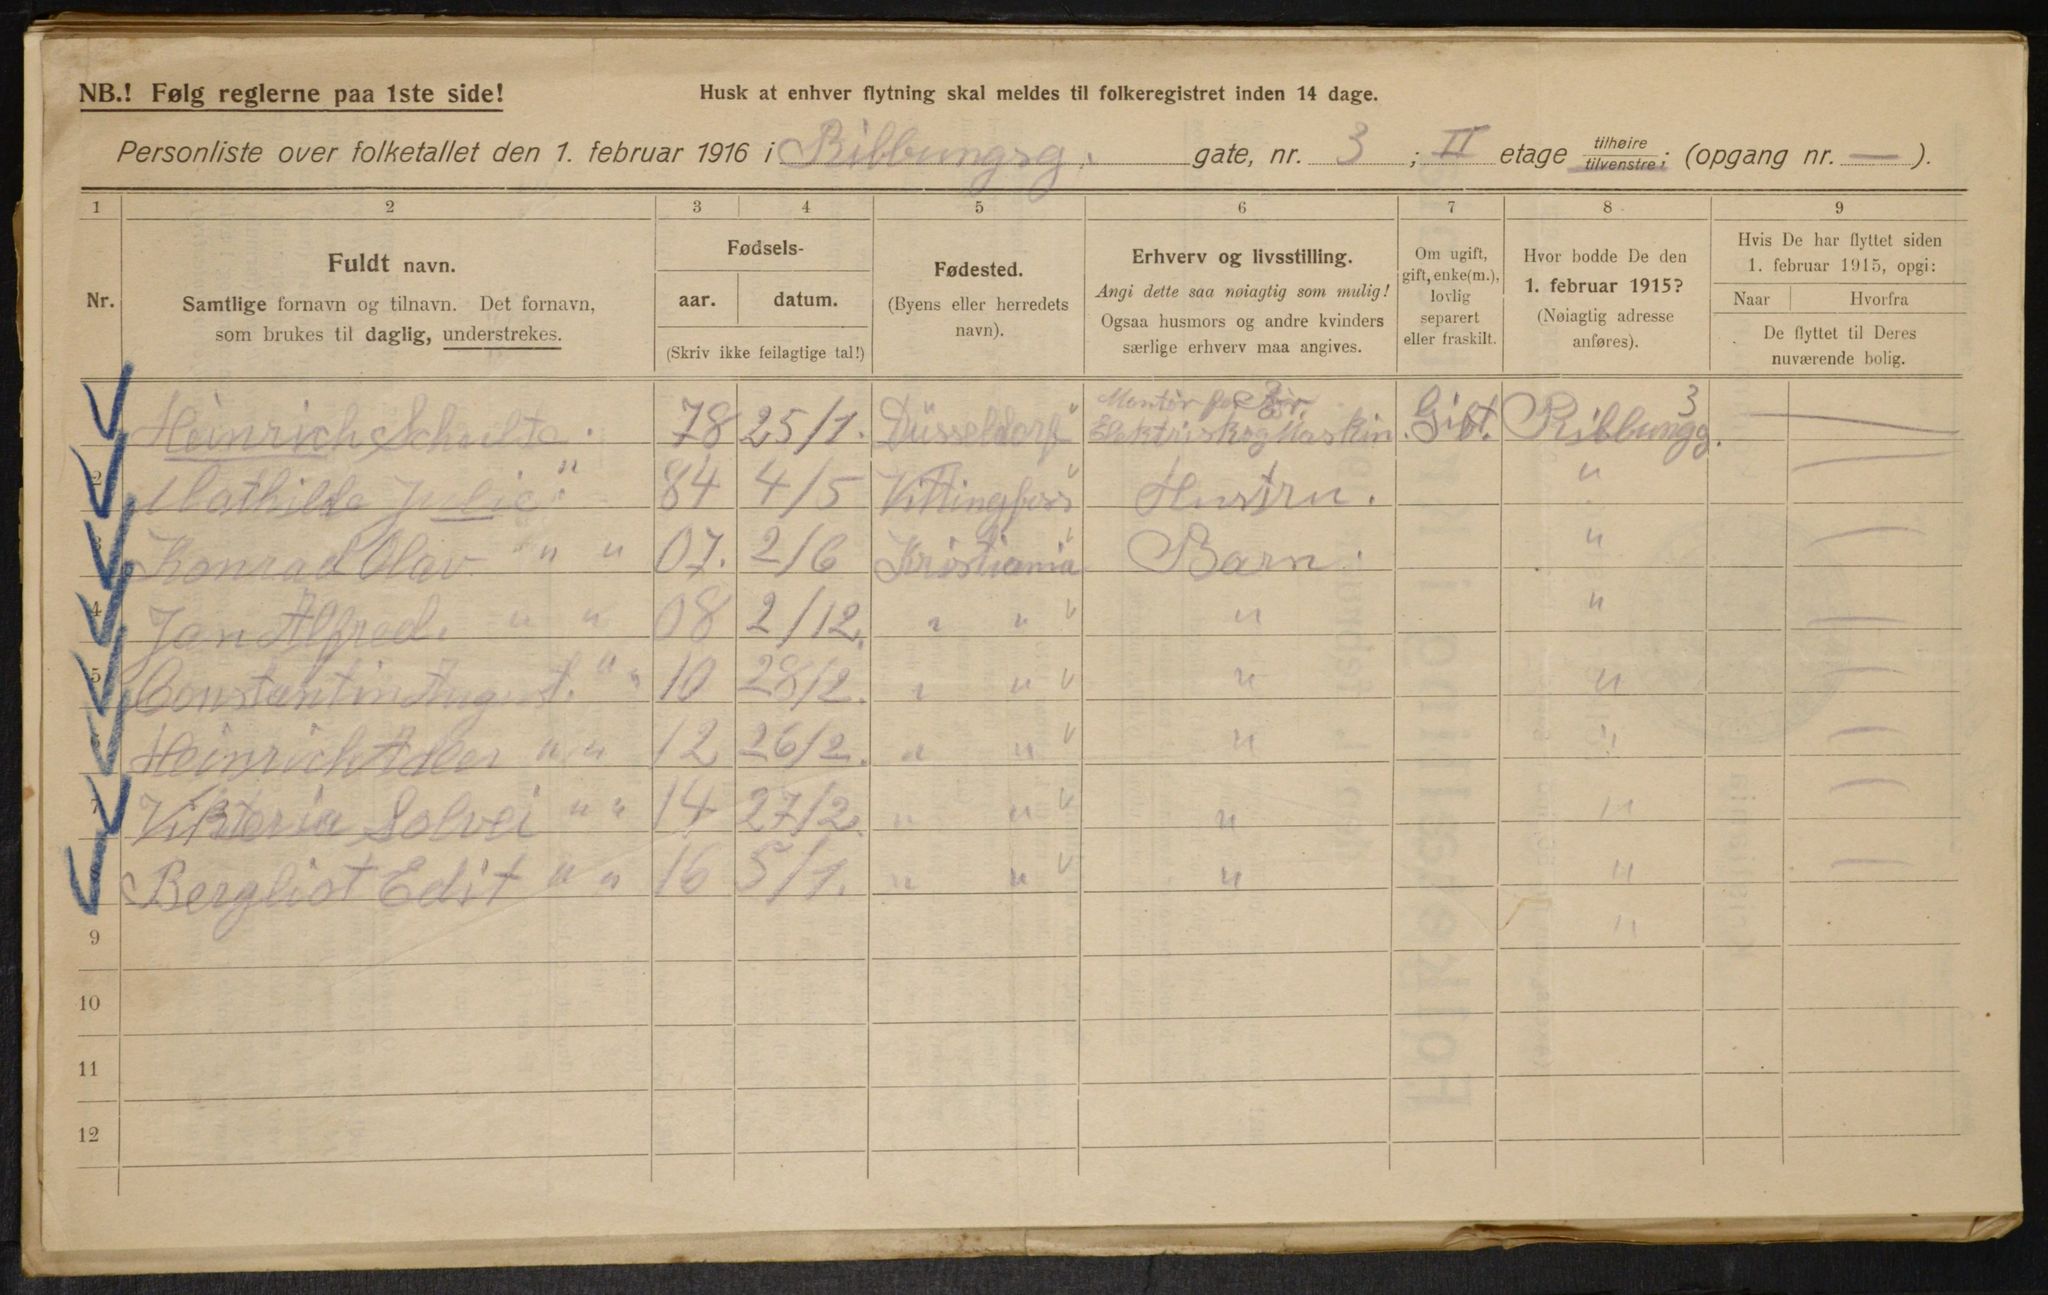 NB.! Følg reglerne paa 1ste side!
Husk at enhver flytning skal meldes til folkeregistret inden 14 dage.
Personliste over folketallet den 1. februar 1916 i Ribbungsg. gate, nr. 3 ; II etage tilhøire tilvenstre; (opgang nr. — ).
1 2 3 4 5 6 7 8 9
Nr.
Fuldt navn.
Samtlige fornavn og tilnavn. Det fornavn,
som brukes til daglig, understrekes.
Fødsels-
aar. datum.
(Skriv ikke feilagtige tal!)
Fødested.
(Byens eller herredets
navn).
Erhverv og livsstilling.
Angi dette saa nøiagtig som mulig!
Ogsaa husmors og andre kvinders
særlige erhverv maa angives.
Om ugift,
gift, enke(m.),
lovlig
separert
eller fraskilt.
Hvor bodde De den
1. februar 1915?
(Nøiagtig adresse
anføres).
Hvis De har flyttet siden
1. februar 1915, opgi:
Naar Hvorfra
De flyttet til Deres
nuværende bolig.
Heinrich Schulte. 78 25/1. Düsseldorf Montør for Elektrisk og Maskin. Gift. Ribbungg. 3 —
2 Mathilde Julie " 84 4/5 Vittingfoss Hustru. " —
3 Konrad Olav " " 07. 2/6 Kristiania Barn. " —
4 Jan Alfred. " " 08 2/12. " " " " —
5 Constantin August. " " 10 28/2. " " " " —
6 Heinrich Adler " " 12 26/2. " " " " —
7 Viktoria Solvei " " 14 27/2. " " " " —
Bergliot Edit " " 16 5/1. " " " " —
9 "
10
11
12